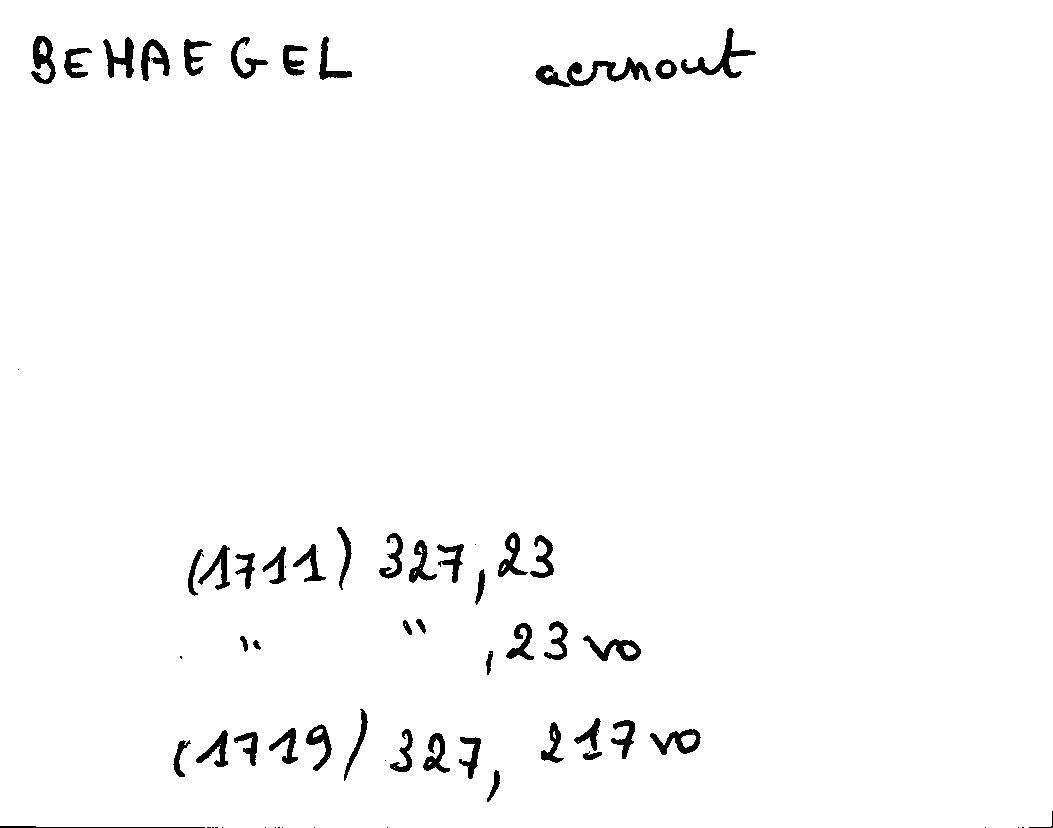 BEHAEGEL aernout
(1711) 327, 23
" " , 23 vo
(1719) 327, 217 vo